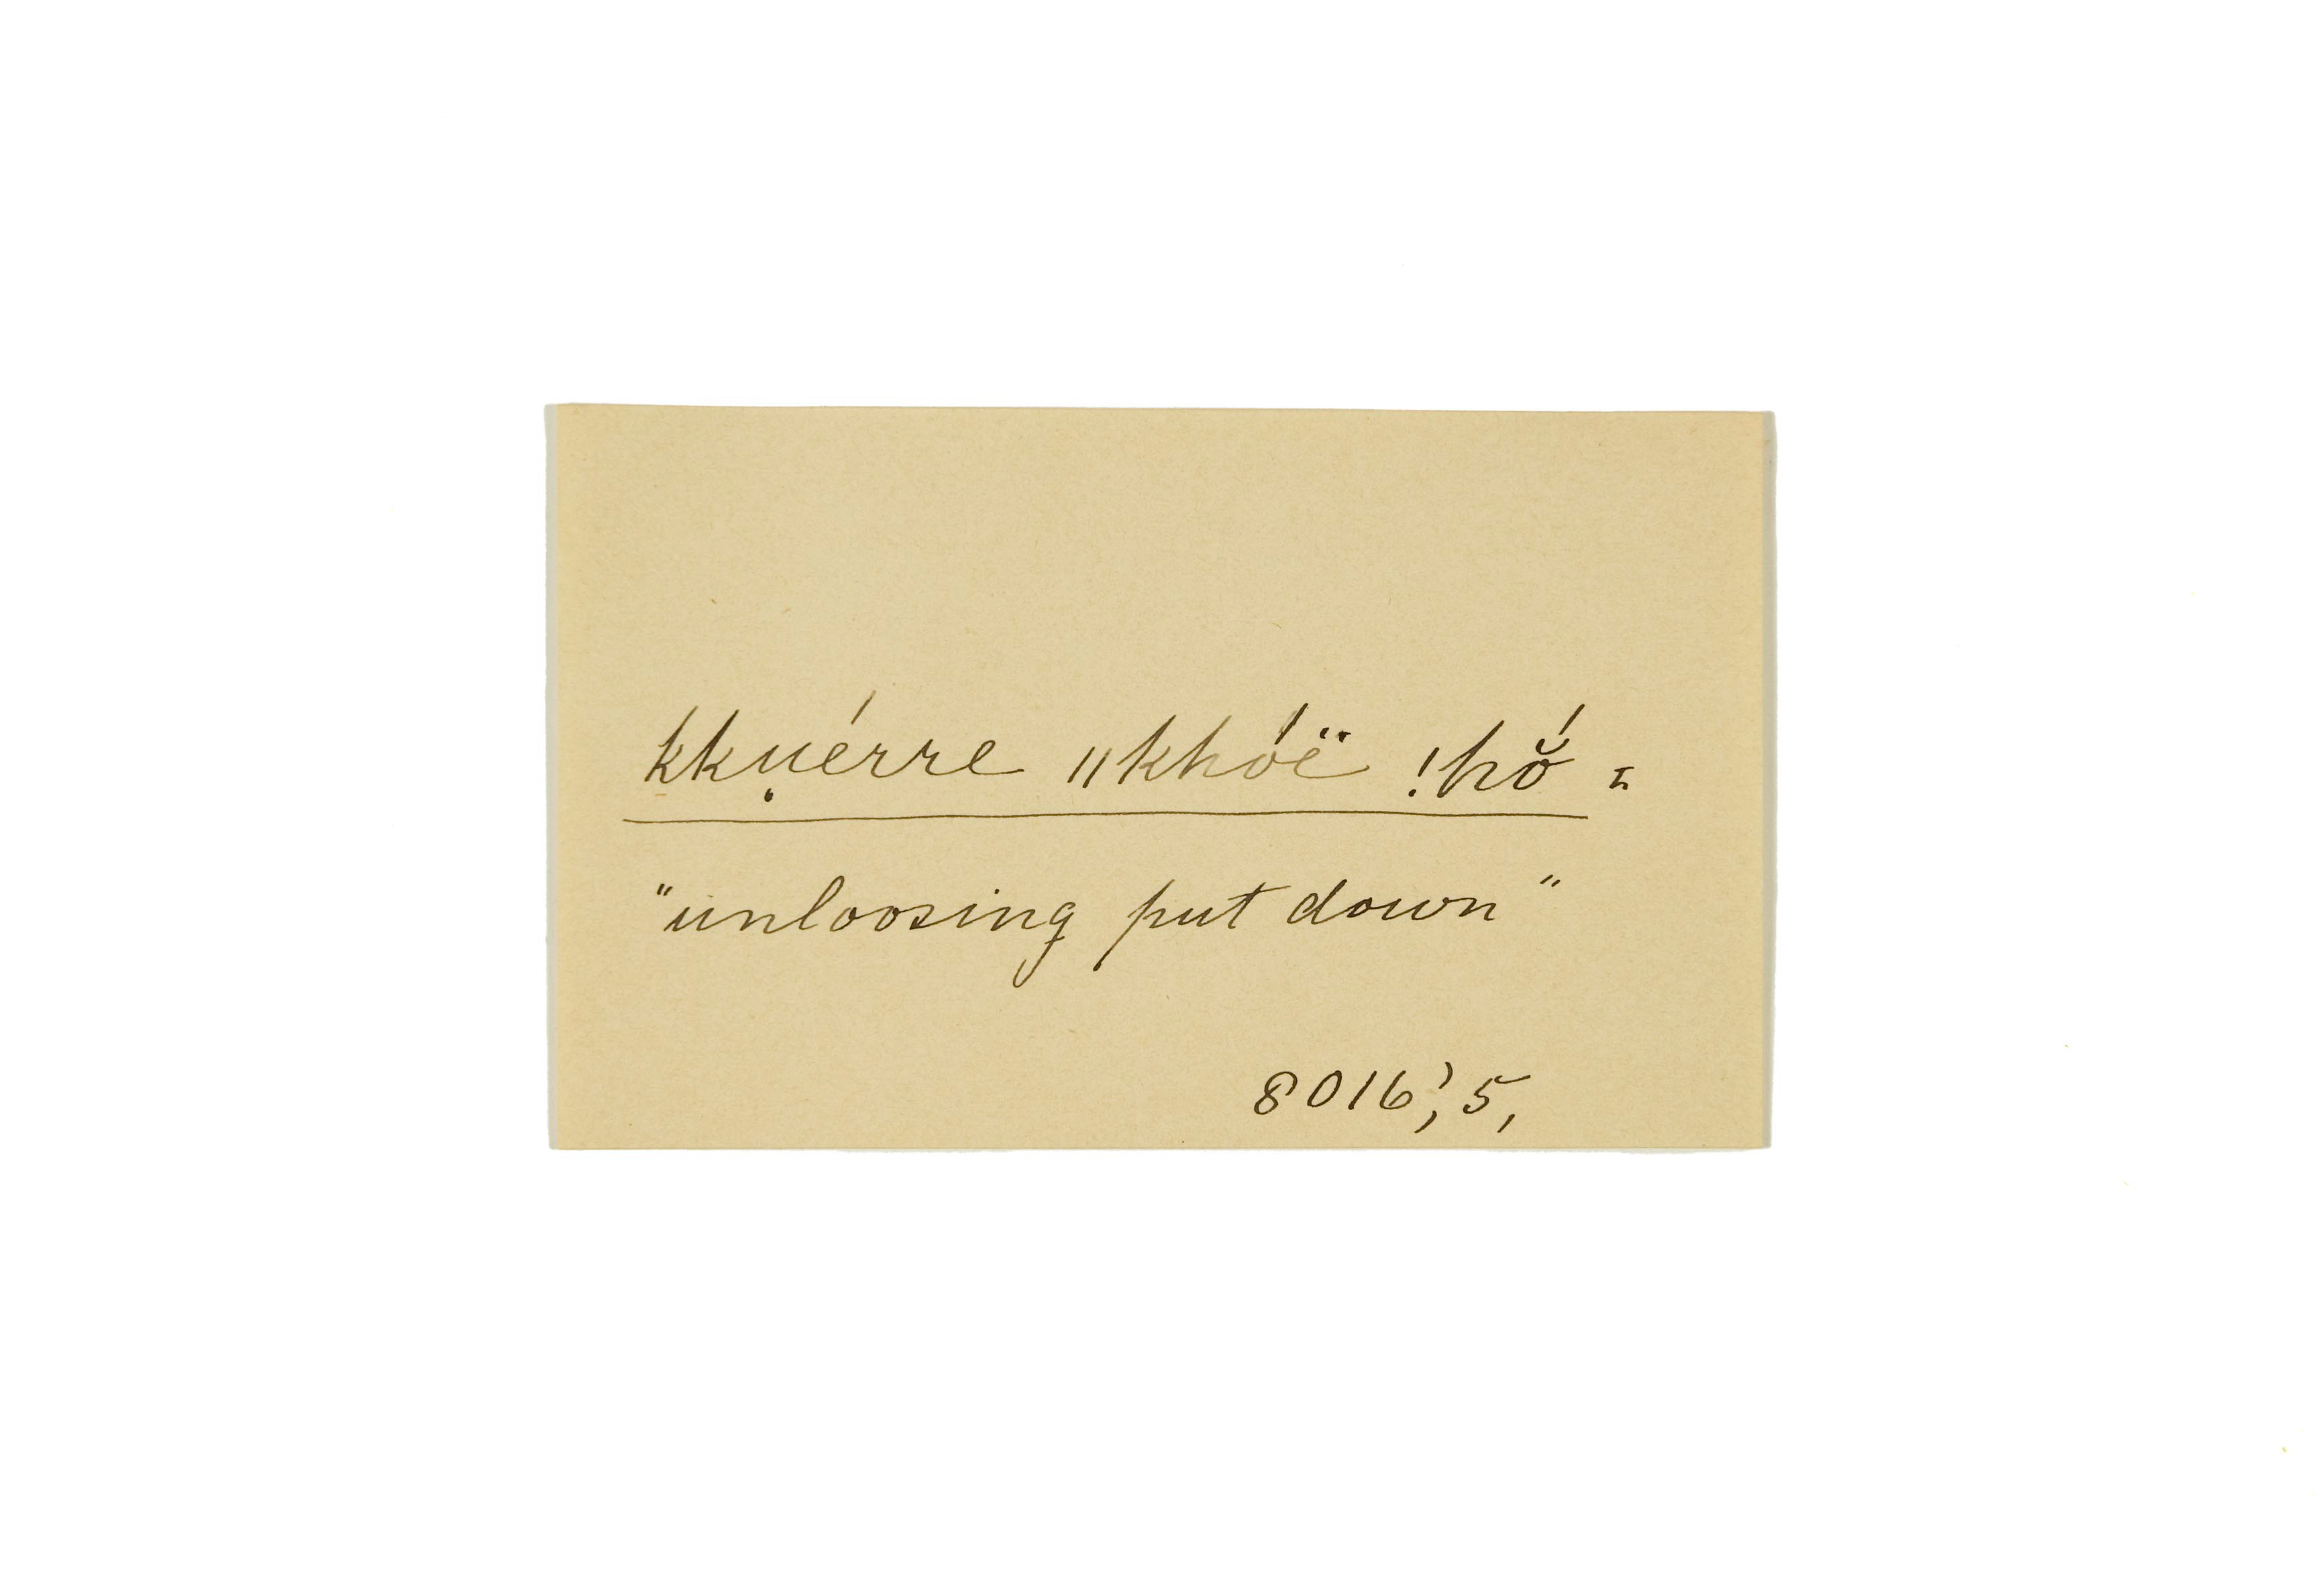 kkụérre ǁkhóë !hŏ́ =
"unloosing put down"
8016', 5,